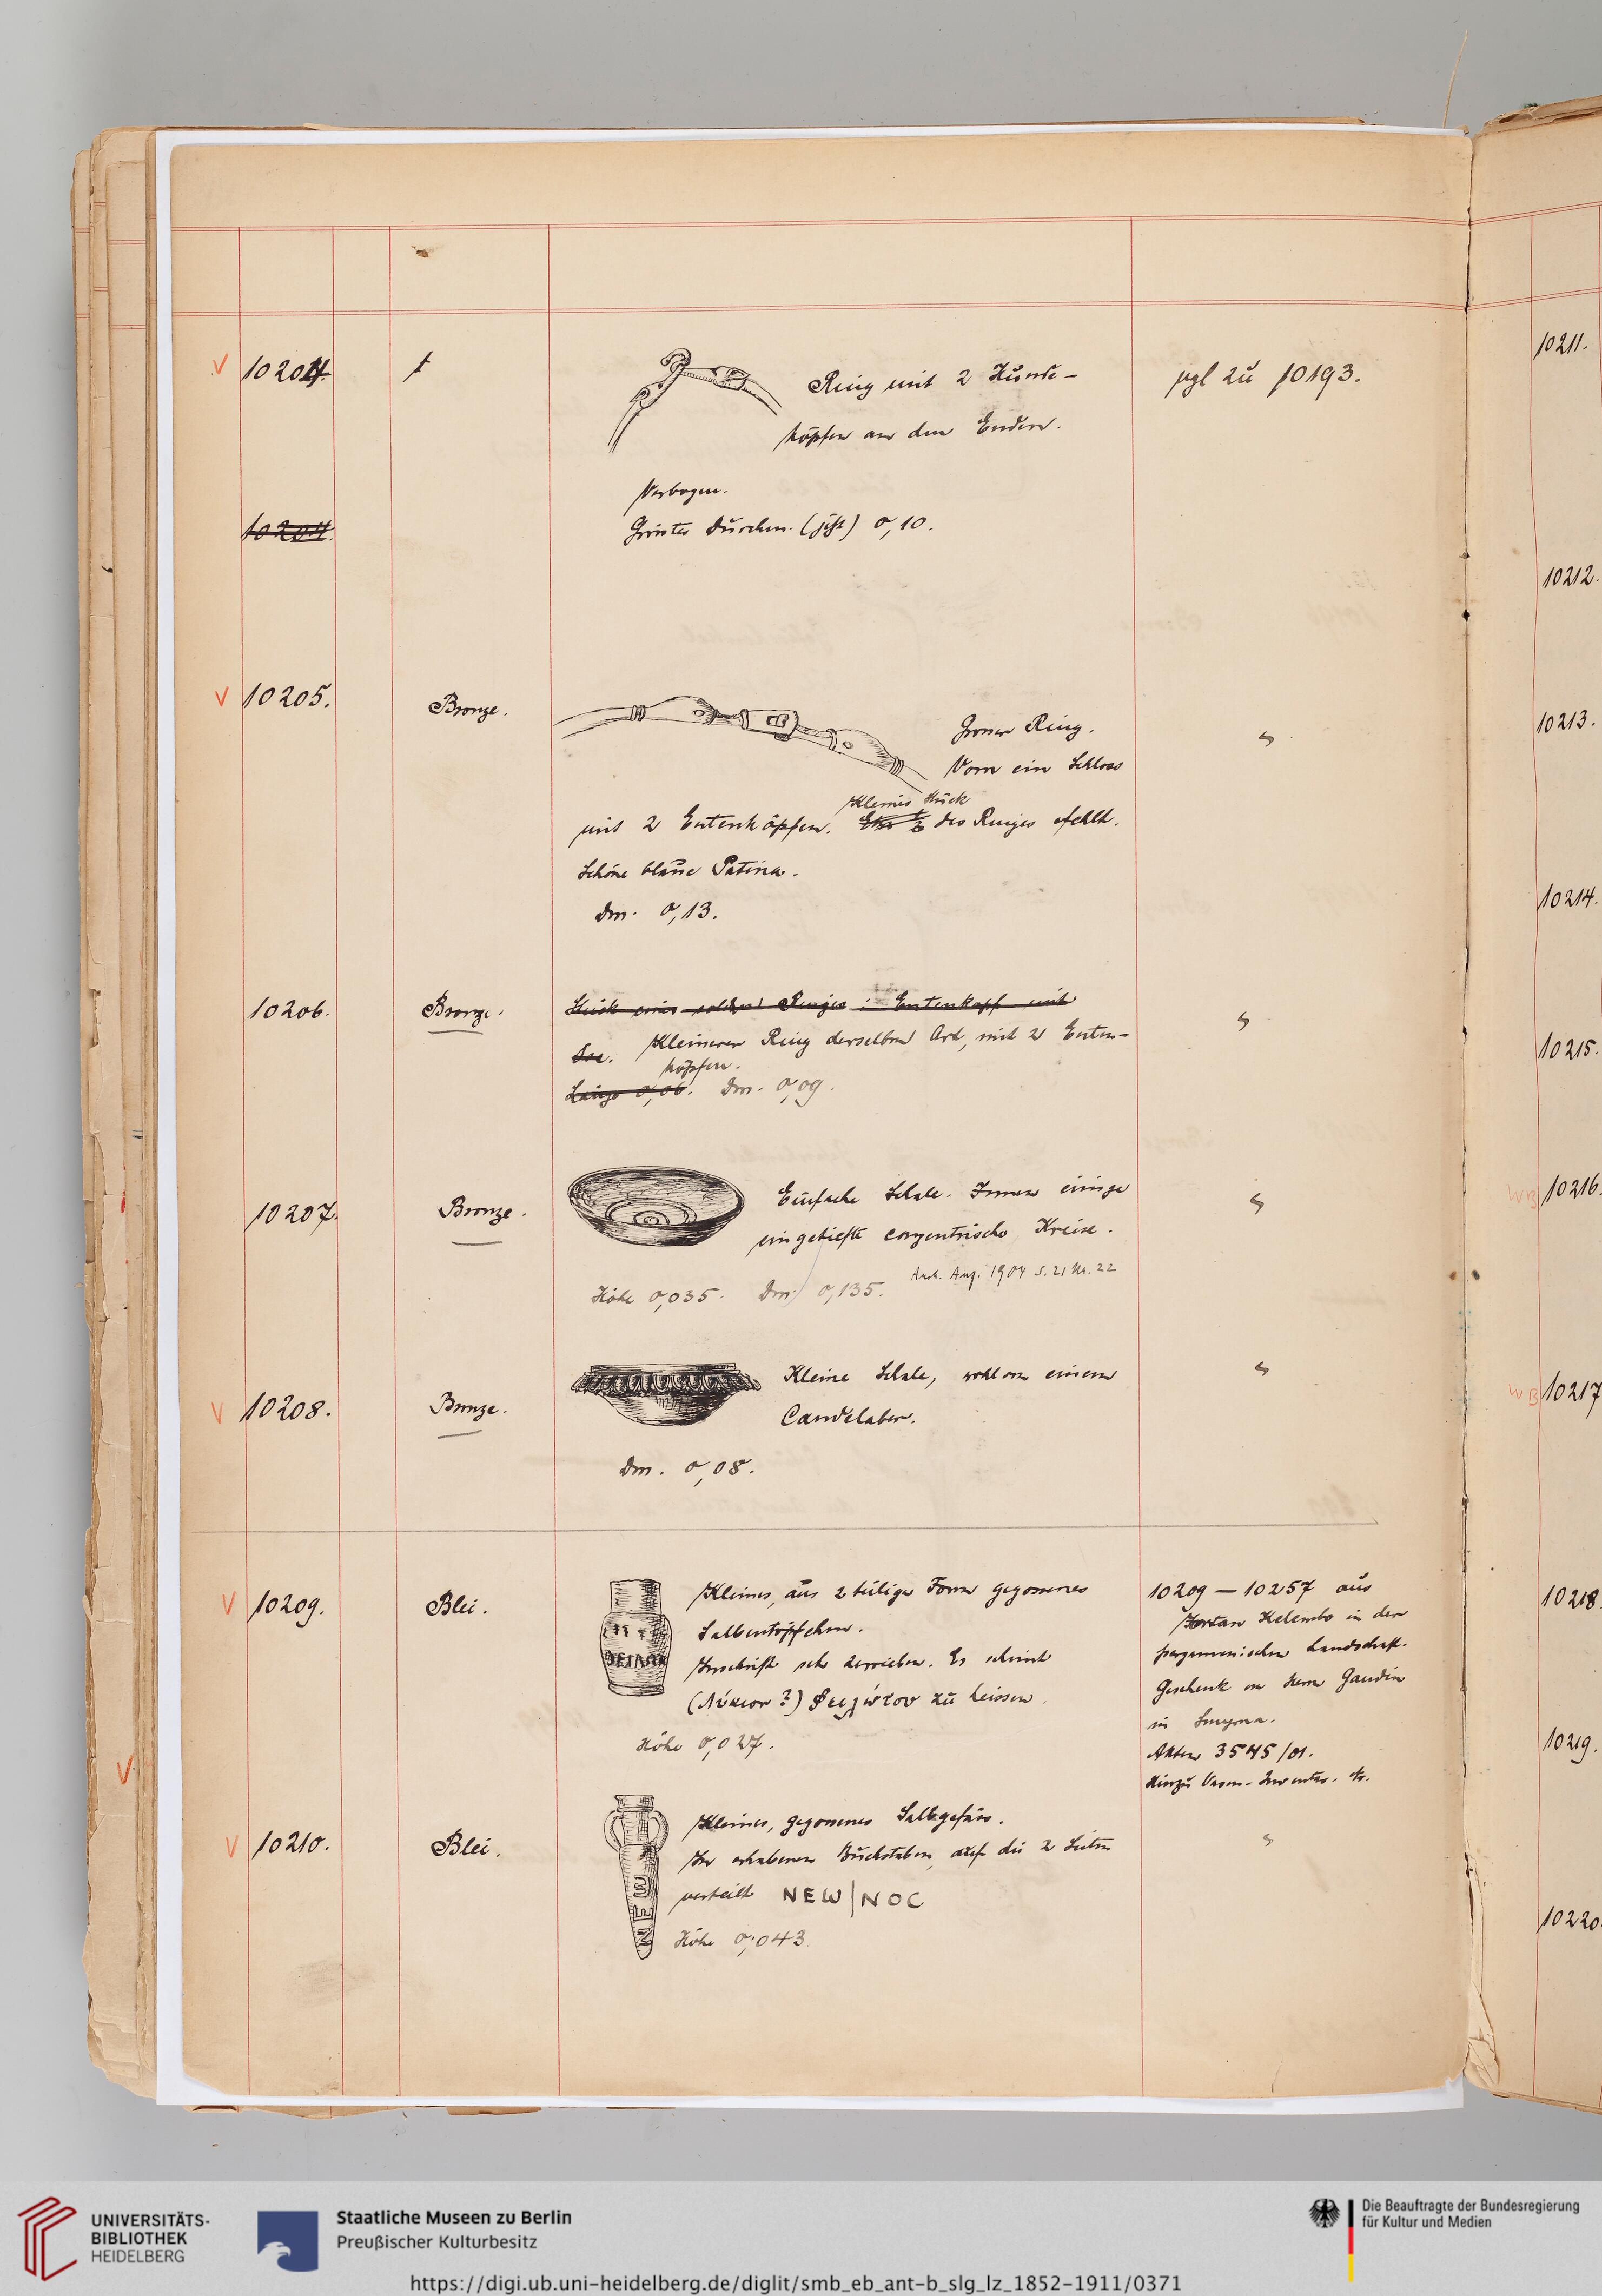 V 10204. Ring mit 2 Hunde- vgl zu 10193.
köpfen an den Enden.
Verbogen.
10204.
Grösster Durchm. (jetzt) 0,10.
V 10205. Bronze.
Grosser Ring.
Vorn ein Schloss
Kleines Stück
mit 2 Entenköpfen. des Ringes fehlt.
Schöne blaue Patina.
Dm. 0,13.
10206. Bronze. Stück eines solchen Ringes: Entenkopf mit
Öse. Kleinerer Ring derselben Art, mit 2 Enten-
köpfen.
Länge 0,06. Dm. 0,09.
10207. Bronze. Einfache Schale. Innen einige
eingetiefte conzentrische Kreise.
Arch. Anz. 1904 S. 21 Nr. 22
Höhe 0,035. Dm. 0,135.
V 10208. Bronze. Kleine Schale, wohl von einem
Candelaber.
Dm. 0,08.
V 10209. Blei. Kleines, aus 2 teiliger Form gegossenes
Salbentöpfchen.
Inschrift sehr zerrieben. Es scheint
(Λύκιον ?) zu heissen.
Höhe 0,027.
10209 — 10257 aus
Kelembo in der
pergamenischen Landschaft.
Geschenk von Herrn Gaudin
in Smyrna.
Akten 3545/01.
Hinzu Vasen-Inventar.
V
V 10210. Blei. Kleines, gegossenes Salbgefäss.
In erhabenen Buchstaben, auf die 2 Seiten
verteilt NEW|NOC
NEW
Höhe 0,043.
10211.
10212.
10213.
10214.
10215.
WB 10216.
WB 10217
10218
10219.
10220.
UNIVERSITÄTS-
BIBLIOTHEK
HEIDELBERG
Staatliche Museen zu Berlin
Preußischer Kulturbesitz
Die Beauftragte der Bundesregierung
für Kultur und Medien
https://digi.ub.uni-heidelberg.de/diglit/smb_eb_ant-b_slg_lz_1852-1911/0371